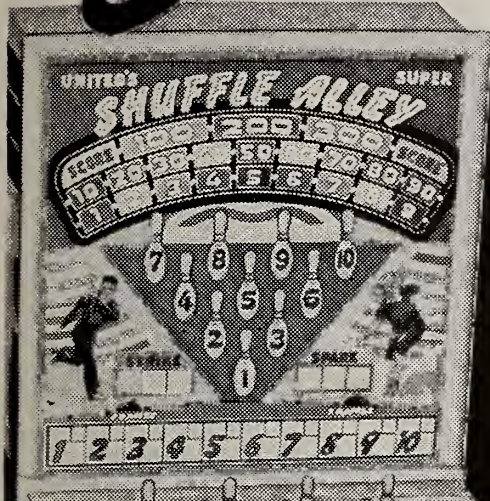 UNITED'S SUPER
SHUFFLE ALLEY
SCORE 100 200 300 SCORE
10 20 30 50 70 80 90
1 2 3 4 5 6 7 8 9
7 8 9 10
4 5 6
2 3
1
STRIKE SPARE
1 2 3 4 5 6 7 8 9 10